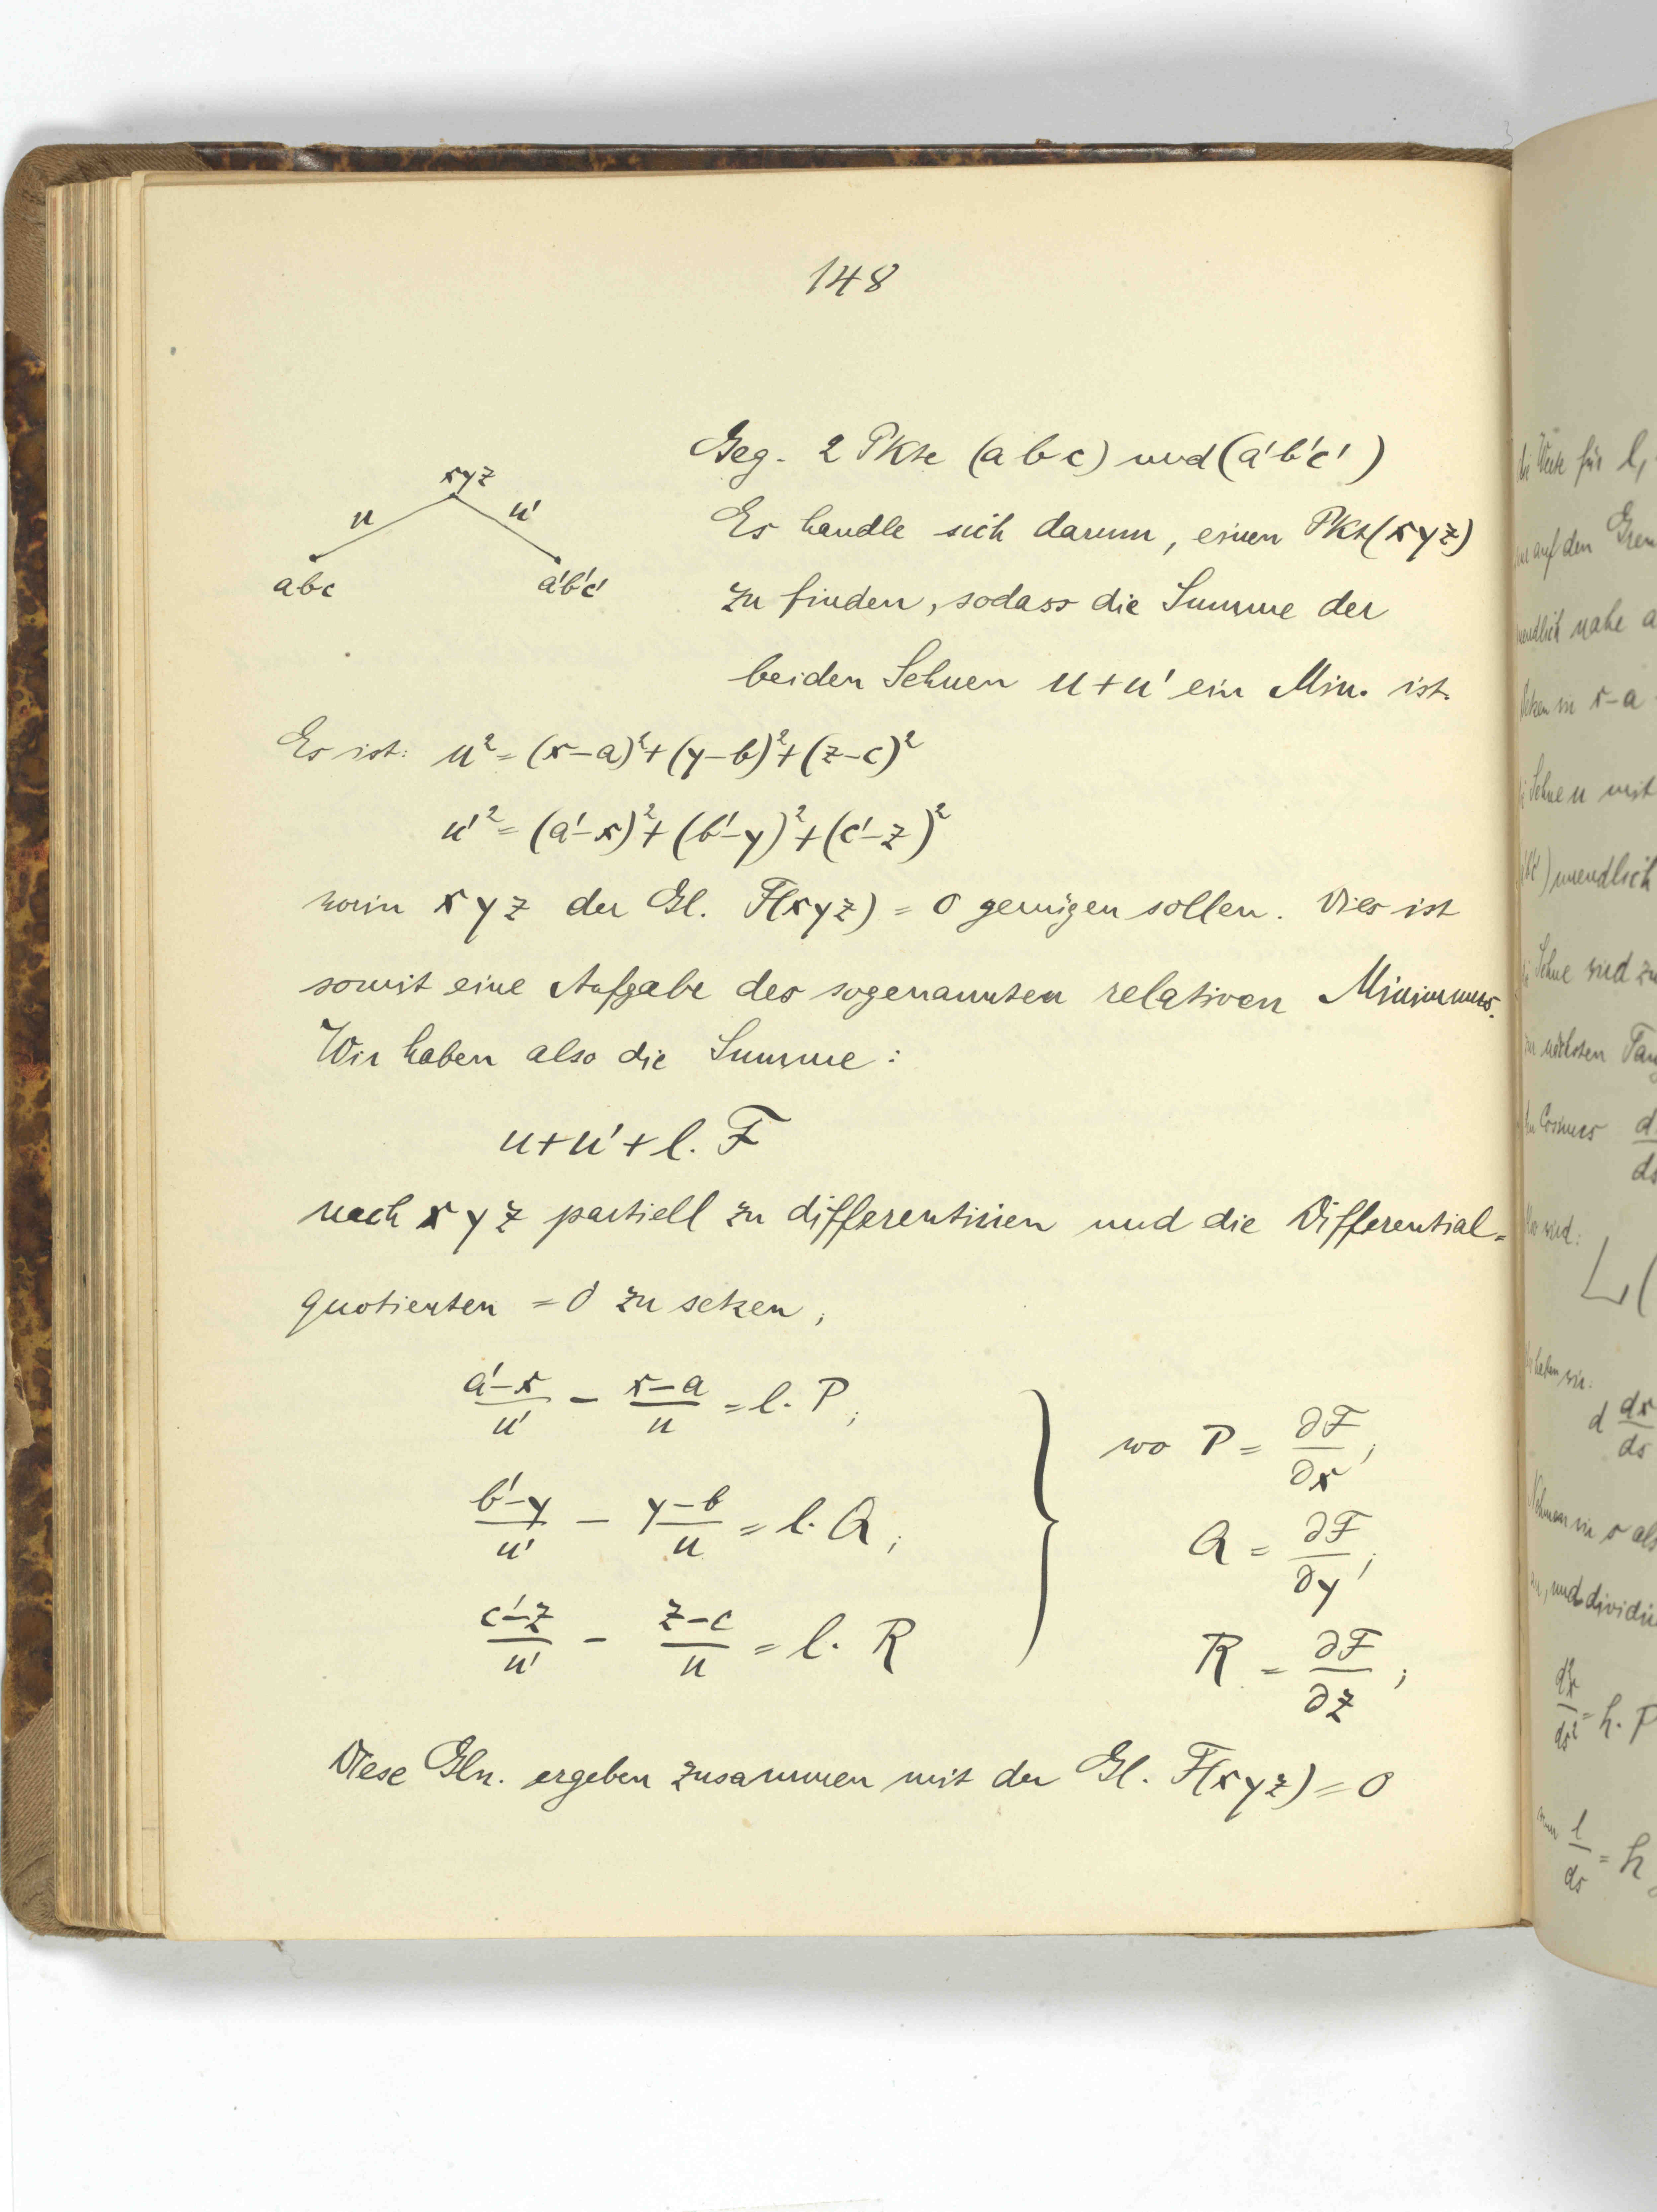 148
xyz
u u'
abc a'b'c'
Geg. 2 Pkte (a b c) und (a'b'c')
Es handle sich darum, einen Pkt (xyz)
zu finden, sodass die Summe der
beiden Sehnen u + u' ein Min. ist.
Es ist: u² = (x−a)² + (y−b)² + (z−c)²
u'² = (a'−x)² + (b'−y)² + (c'−z)²
worin x y z der Gl. F(xyz) = 0 genügen sollen. Dies ist
somit eine Aufgabe des sogenannten relativen Minimums.
Wir haben also die Summe:
u + u' + l. F
nach x y z partiell zu differentiieren und die Differential=
quotienten = 0 zu setzen;
(a'−x)/u' − (x−a)/u = l. P; wo P = ∂F/∂x;
(b'−y)/u' − (y−b)/u = l. Q; Q = ∂F/∂y;
(c'−z)/u' − (z−c)/u = l. R R = ∂F/∂z;
Diese Gln. ergeben zusammen mit der Gl. F(xyz) = 0
Werte für l,
auf den
nahe a
in x−a
Sehne u mit
unendlich
Sehne und zu
Cosinus
wird:
L (
haben wir:
d dx/ds
s als
und dividi
= h. P
l/ds = h